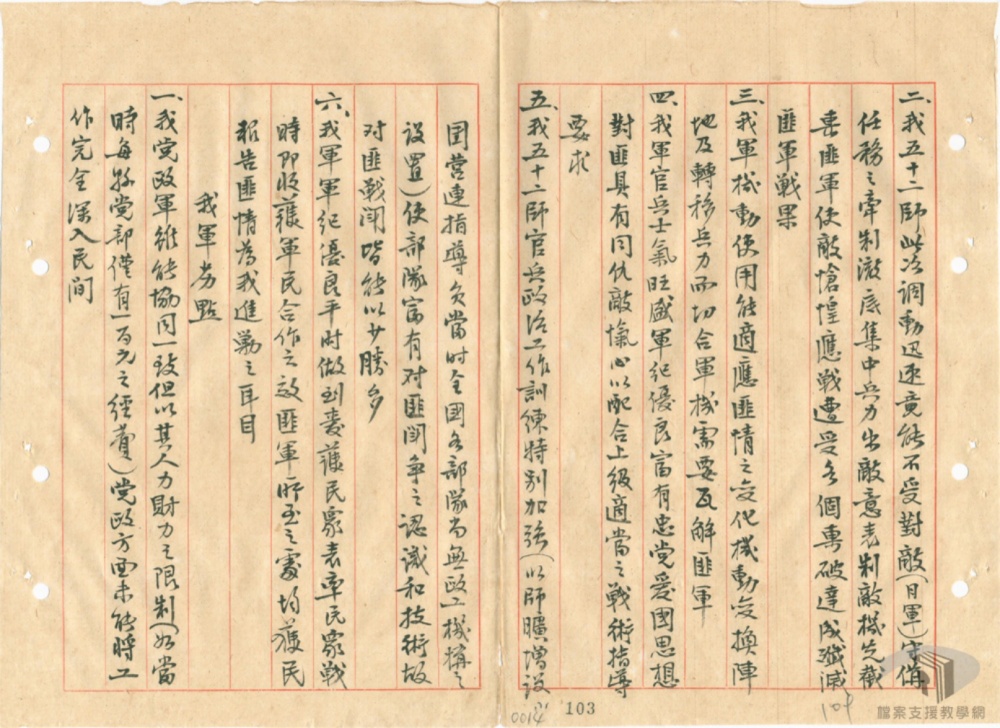 二、我五十二師此次調動迅速竟能不受對敵(日軍)守備
任務之牽制澈底集中兵力出敵意表制敵機先截
擊匪軍使敵愴惶應戰遭受各個擊破達成殲滅
匪軍戰果
三、我軍機動使用能適應匪情之变化機動变換陣
地及轉移兵力而切合軍機需要瓦解匪軍
四、我軍官兵士氣旺盛軍紀優良富有忠党爱國思想
對匪具有同仇敵愾心以配合上級適當之戰術指導
要求
五、我五十二師官兵政治工作訓練特別加強(以師曠增設
團營連指導員當時全國各部隊尚無政工機構之
設置)使部隊富有对匪鬥争之認識和技術故
对匪戰闘皆能以少勝多
六、我軍軍紀優良平时做到爱護民眾表率民眾戰
時即收穫軍民合作之效匪軍所至之處均獲民
報告匪情為我進勦之耳目
我軍劣點
一、我党政軍雖能協同一致但以其人力財力之限制(如當
時每縣党部僅有一百元之經費)党政方面未能將工
作完全深入民间
0014
103
104
檔案支援教學網